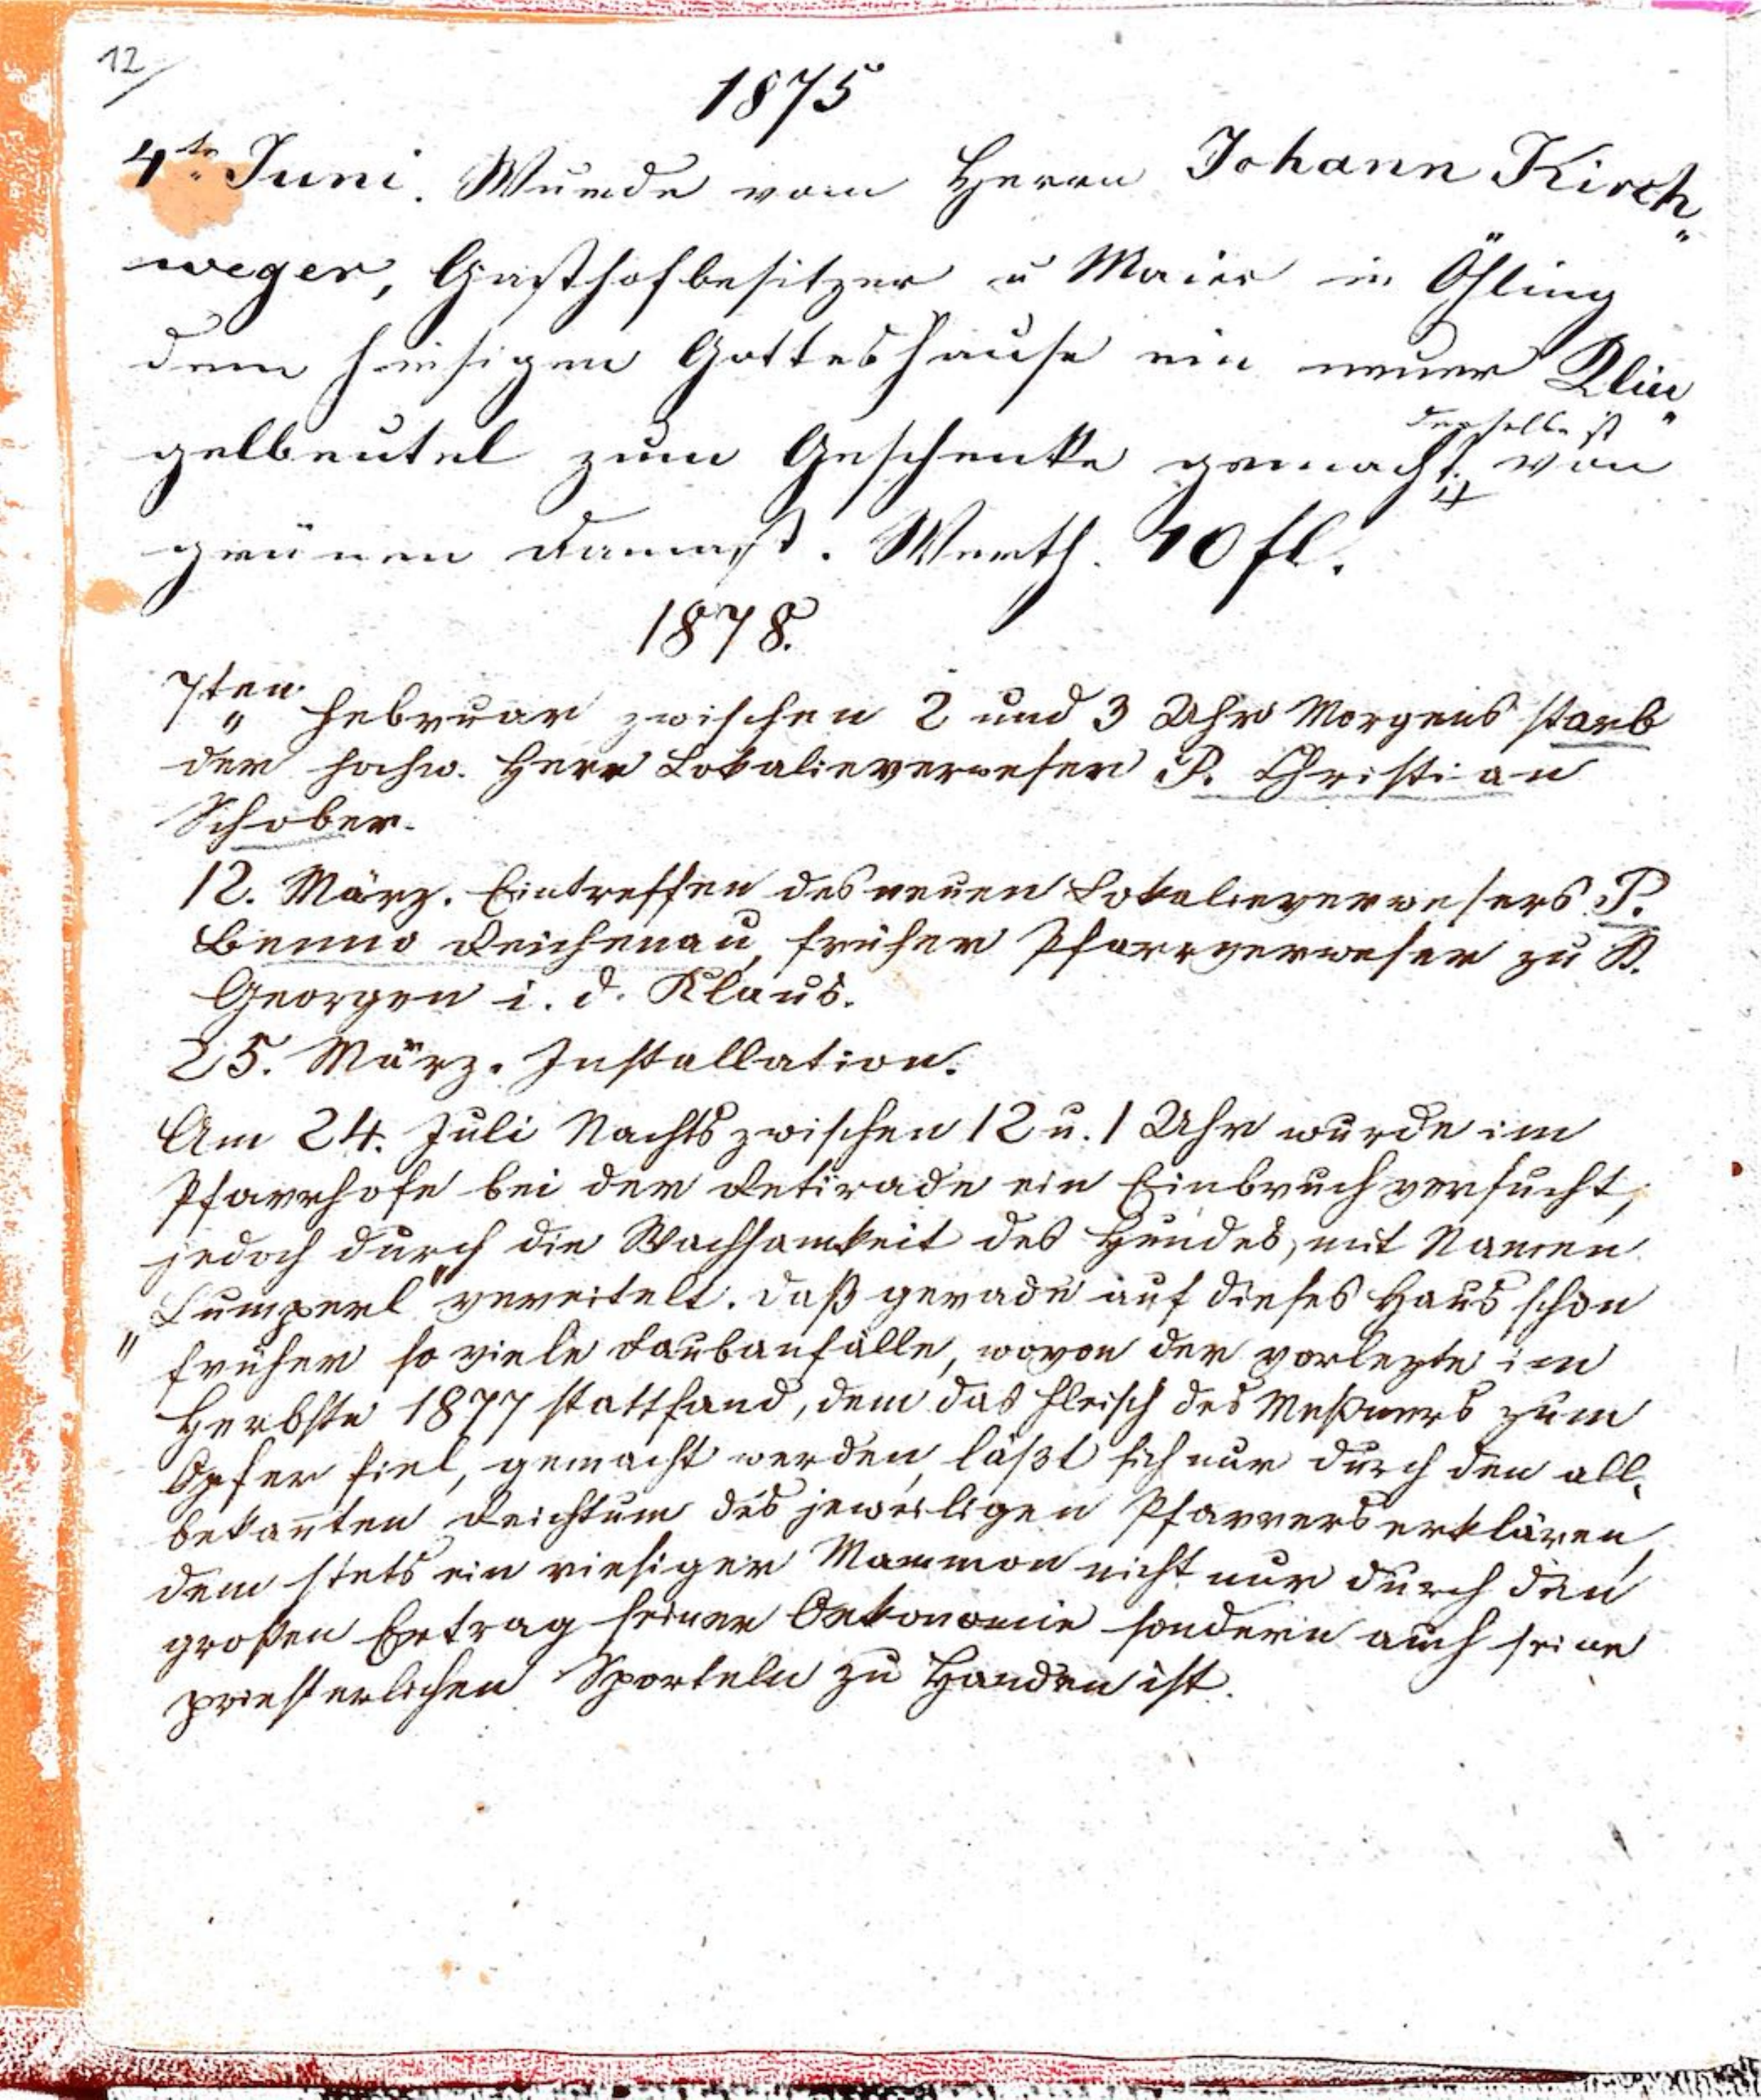 12
1875
4te Juni. Wurde vom Herrn Johann Kirch„
weger, Gasthofbesitzer u Maier in Öhling
dem hiesigen Gotteshause ein neuer Klin„
derselbe ist
gelbeutel zum Geschenke gemacht. von
grünen Damast. Werth. 10 fl.
1878.
7ten Februar zwischen 2 und 3 Uhr Morgens starb
der hochw. Herr Lokalieverweser P. Christian
Schober.
12. März. Eintreffen des neuen Lokalieverwesers P.
Benno Reichenau, früher Pfarrverweser zu St.
Georgen i. d. Klaus.
25. März. Installation.
Am 24. Juli Nachts zwischen 12 u. 1 Uhr wurde im
Pfarrhofe bei der Retirade ein Einbruch versucht,
jedoch durch die Wachsamkeit des Hundes, mit Namen
„Lumperl" vereitelt. Daß gerade auf dieses Haus schon
früher so viele Raubanfälle, wovon der vorlezte im
Herbste 1877 stattfand, dem das Fleisch des Meßners zum
Opfer fiel, gemacht werden, läßt sich nur durch den all„
bekan̄ten Reichtum des jeweiligen Pfarrers erklären,
dem stets ein riesiger Mammon nicht nur durch den
großen Ertrag seiner Oekonomie sondern auch seine
priesterlichen Sporteln zu Handen ist.